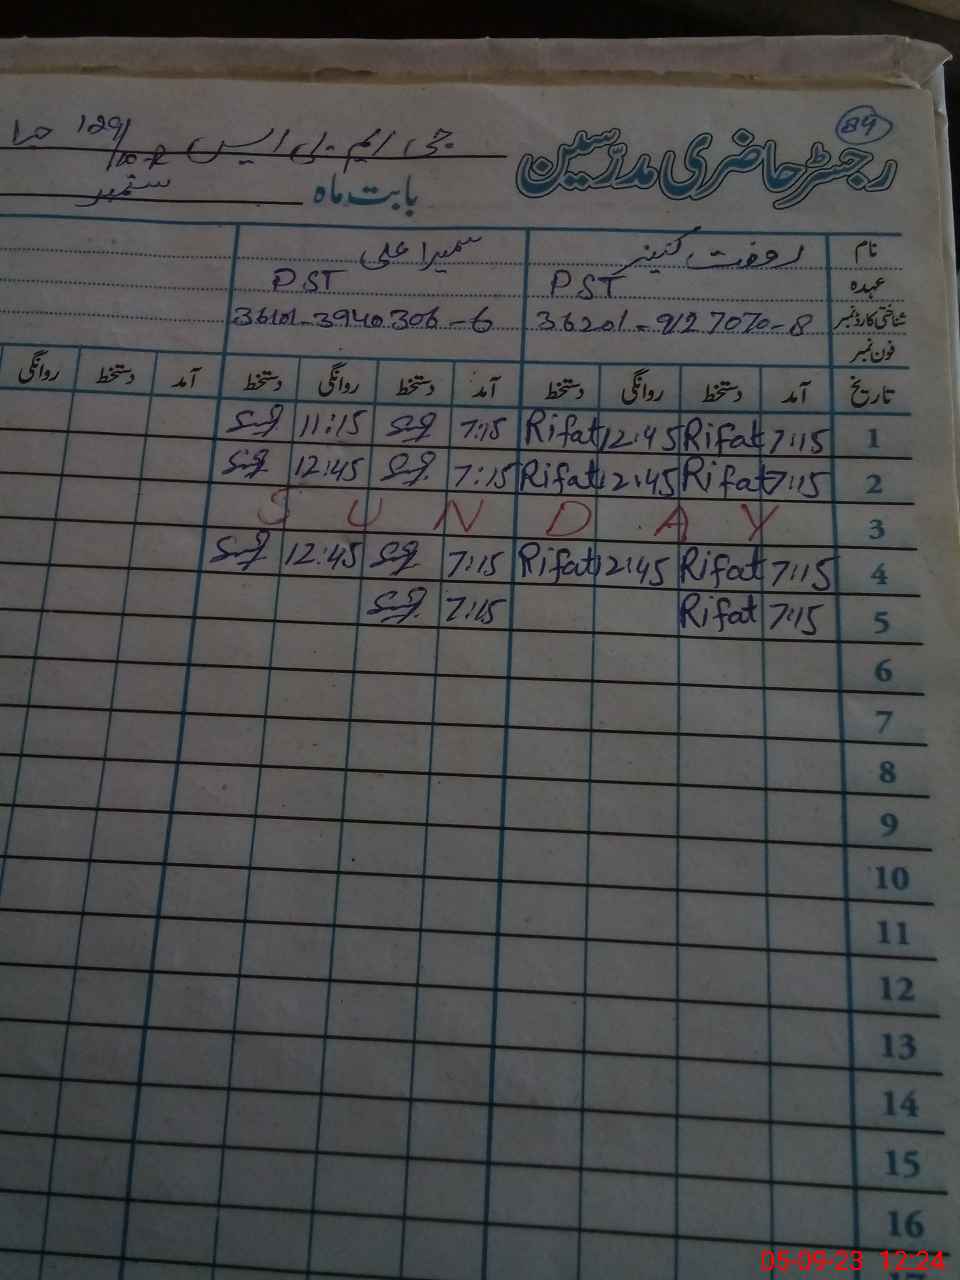 84
رجسٹر حاضری مدرسین جی ایم پی ایس 129/10-R
بابت ماہ ستمبر
نام رفعت کنیز سمیرا علی
عہدہ PST PST
شناختی کارڈ نمبر 36201-9127070-8 36101-3940306-6
فون نمبر
تاریخ آمد دستخط روانگی دستخط آمد دستخط روانگی دستخط آمد دستخط روانگی
1 7:15 Rifat 12:45 Rifat 7:15 11:15
2 7:15 Rifat 12:45 Rifat 7:15 12:45
3 SUNDAY
4 7:15 Rifat 12:45 Rifat 7:15 12:45
5 7:15 Rifat 7:15
6
7
8
9
10
11
12
13
14
15
16
05-09-23 12:24